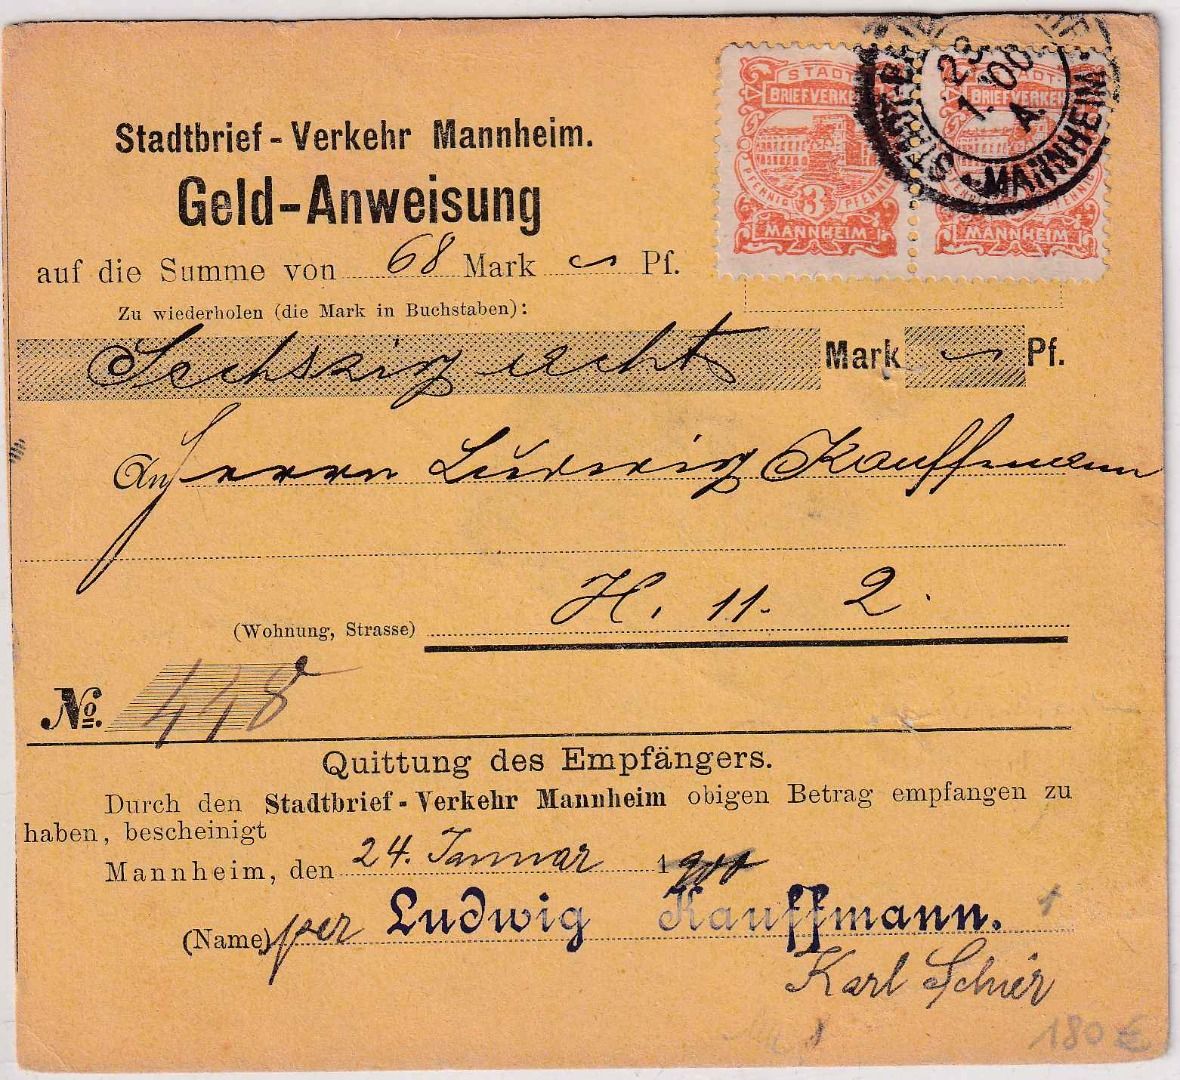 STADT- STADT-
BRIEFVERKEHR BRIEFVERKEHR
PFENNIG 3 PFENNIG PFENNIG
MANNHEIM MANNHEIM
23
1.00
A.
MANNHEIM
Stadtbrief-Verkehr Mannheim.
Geld-Anweisung
auf die Summe von 68 Mark Pf.
Zu wiederholen (die Mark in Buchstaben):
Sechszig acht Mark Pf.
An Herrn Ludwig Kauffmann
(Wohnung, Strasse) H. 11. 2.
No. 448
Quittung des Empfängers.
Durch den Stadtbrief-Verkehr Mannheim obigen Betrag empfangen zu
haben, bescheinigt
Mannheim, den 24. Januar 1900
(Name) per Ludwig Kauffmann.
Karl Schier
180 €